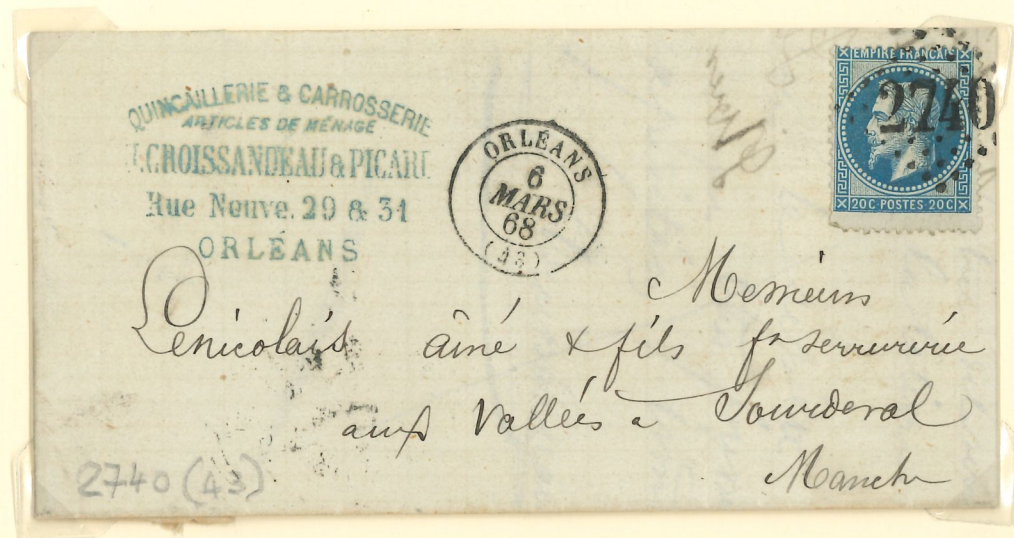 QUINCAILLERIE & CARROSSERIE
ARTICLES DE MÉNAGE
CROISSANDEAU & PICARD
Rue Neuve. 29 & 31
ORLÉANS
ORLÉANS
6
MARS
68
(43)
EMPIRE FRANCAIS
2740
20C POSTES 20C
Messieurs
Lenicolais ainé & fils ft serrurerie
aux Vallées a Sourdeval
Manche
2740 (43)